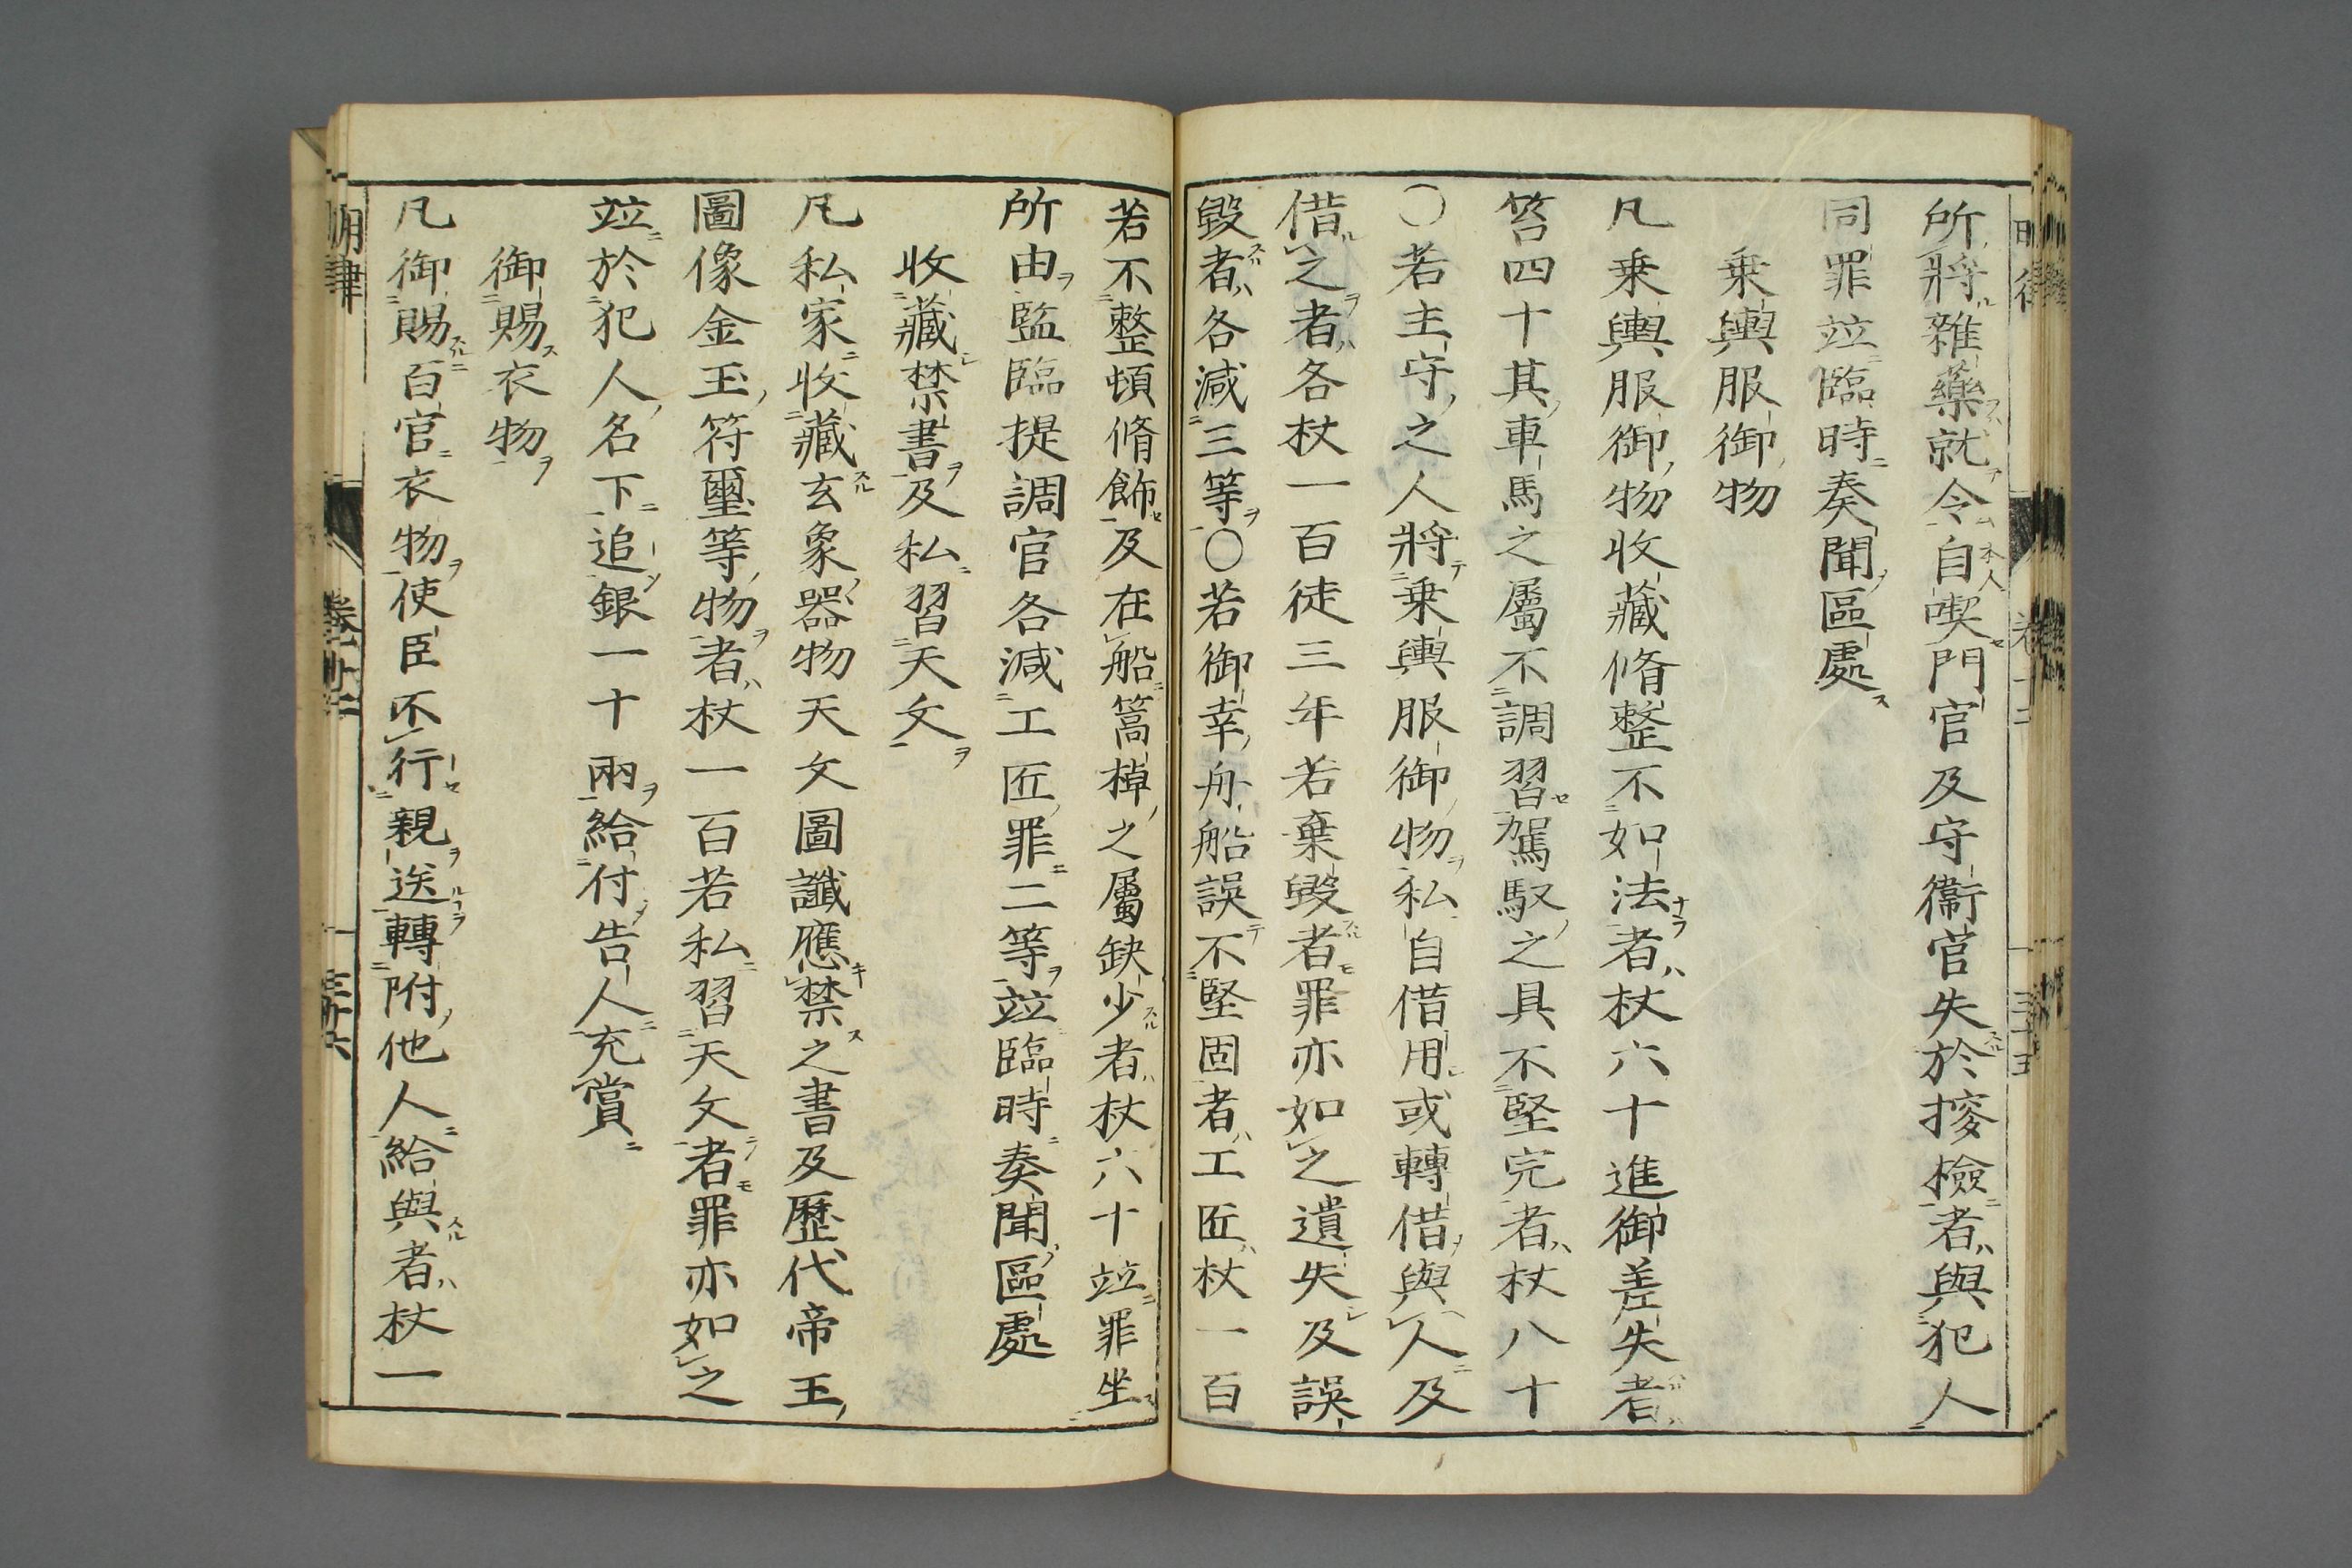 所將雜藥就令自喫門官及守衞官失於搜檢者與犯人
同罪竝臨時奏聞區處
乗輿服御物
凡乗輿服御物收藏脩整不如法者杖六十進御差失者
笞四十其車馬之屬不調習駕馭之具不堅完者杖八十
〇若主守之人將乗輿服御物私自借用或轉借與人及
借之者各杖一百徒三年若棄毀者罪亦如之遺失及誤
毀者各減三等〇若御幸舟船誤不堅固者工匠杖一百
若不整頓脩飾及在船篙棹之屬缺少者杖六十竝罪坐
所由監臨提調官各減工匠罪二等竝臨時奏聞區處
收藏禁書及私習天文
凡私家收藏玄象器物天文圖讖應禁之書及歷代帝王
圖像金玉符璽等物者杖一百若私習天文者罪亦如之
竝於犯人名下追銀一十兩給付告人充賞
御賜衣物
凡御賜百官衣物使臣不行親送轉附他人給與者杖一
明律 卷十二 三十六